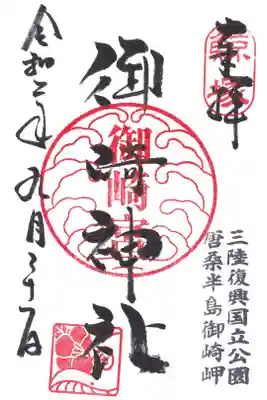 奉拝
三陸復興国立公園
唐桑半島御崎岬
御崎神社
令和二年九月二十一日